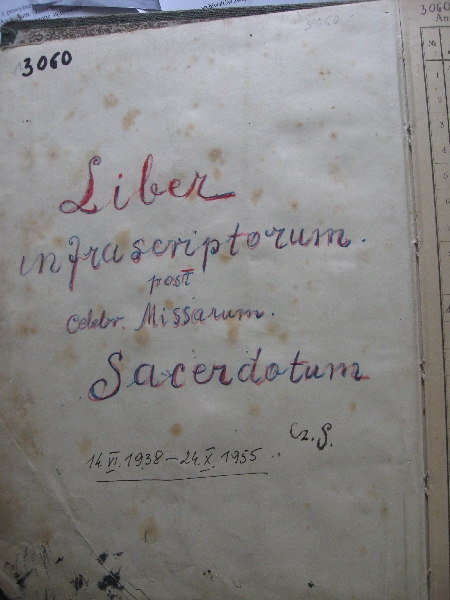 3060
3060
Liber
infrascriptorum.
post
Celebr. Missarum.
Sacerdotum
Cz. S.
14.VI.1938 – 24.X.1955
3060
An
№
1
2
3
4
5